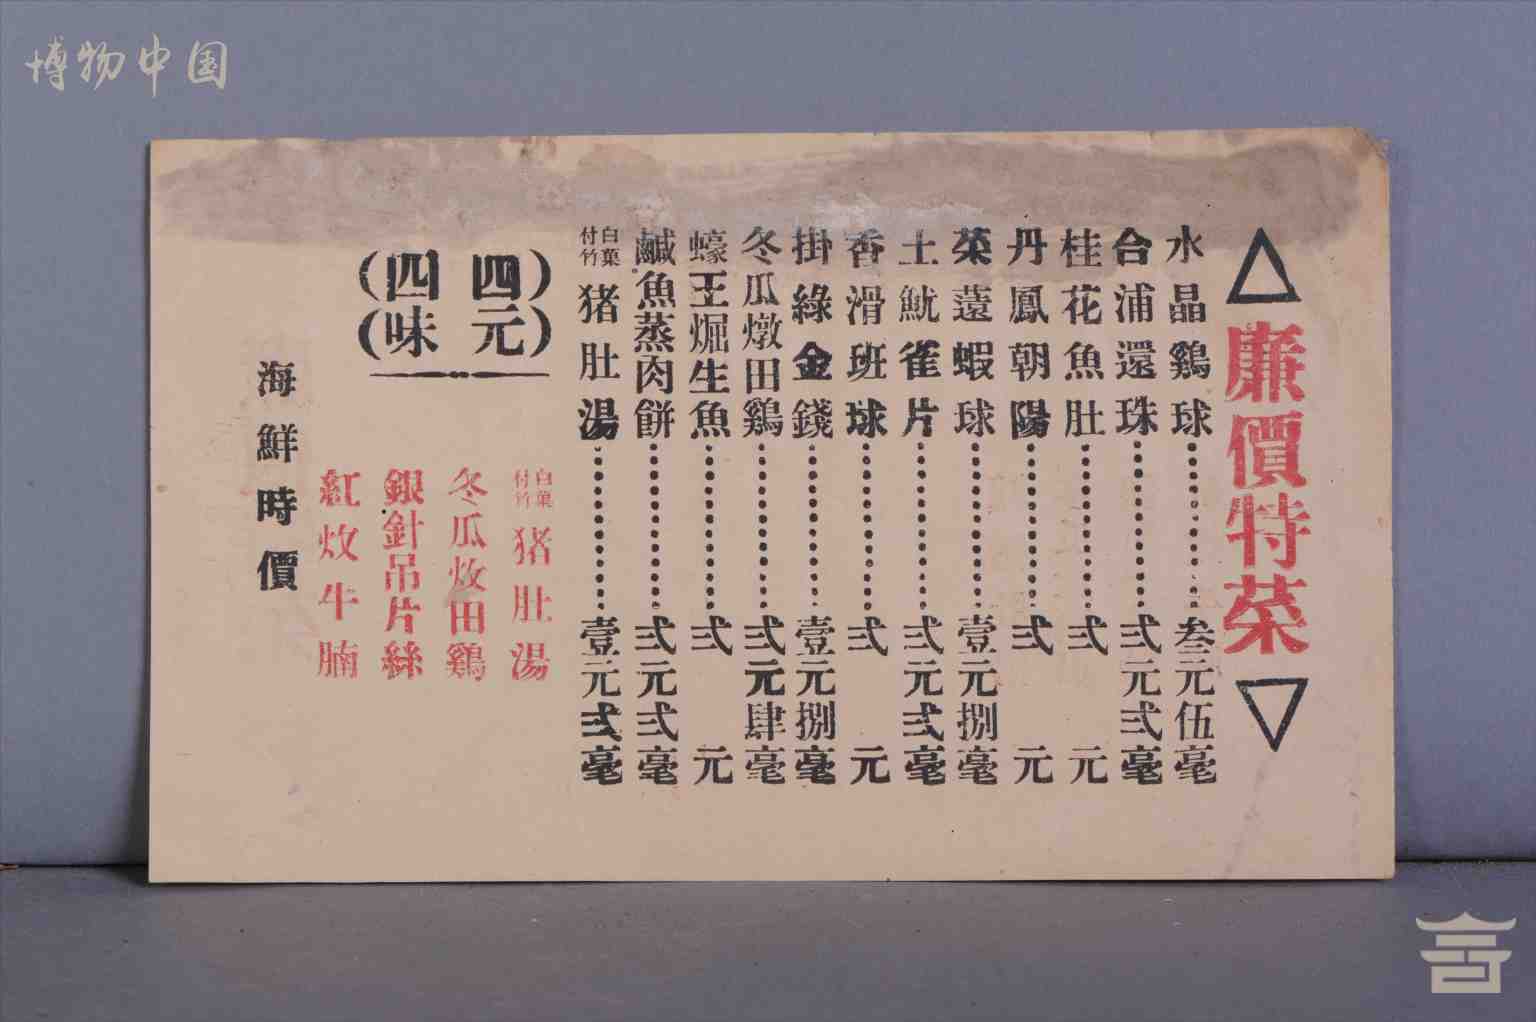 博物中国
△廉價特菜▽
水晶鷄球………叁元伍毫
合浦還珠………弍元弍毫
桂花魚肚………弍元
丹鳳朝陽………弍元
菜薳蝦球………壹元捌毫
土魷雀片………弍元弍毫
香滑班球………弍元
掛綠金錢………壹元捌毫
冬瓜燉田鷄………弍元肆毫
蠔王焗生魚………弍元
鹹魚蒸肉餅………弍元弍毫
白菓付竹猪肚湯………壹元弍毫
(四元)
(四味)
白菓付竹猪肚湯
冬瓜炆田鷄
銀針吊片絲
紅炆牛腩
海鮮時價